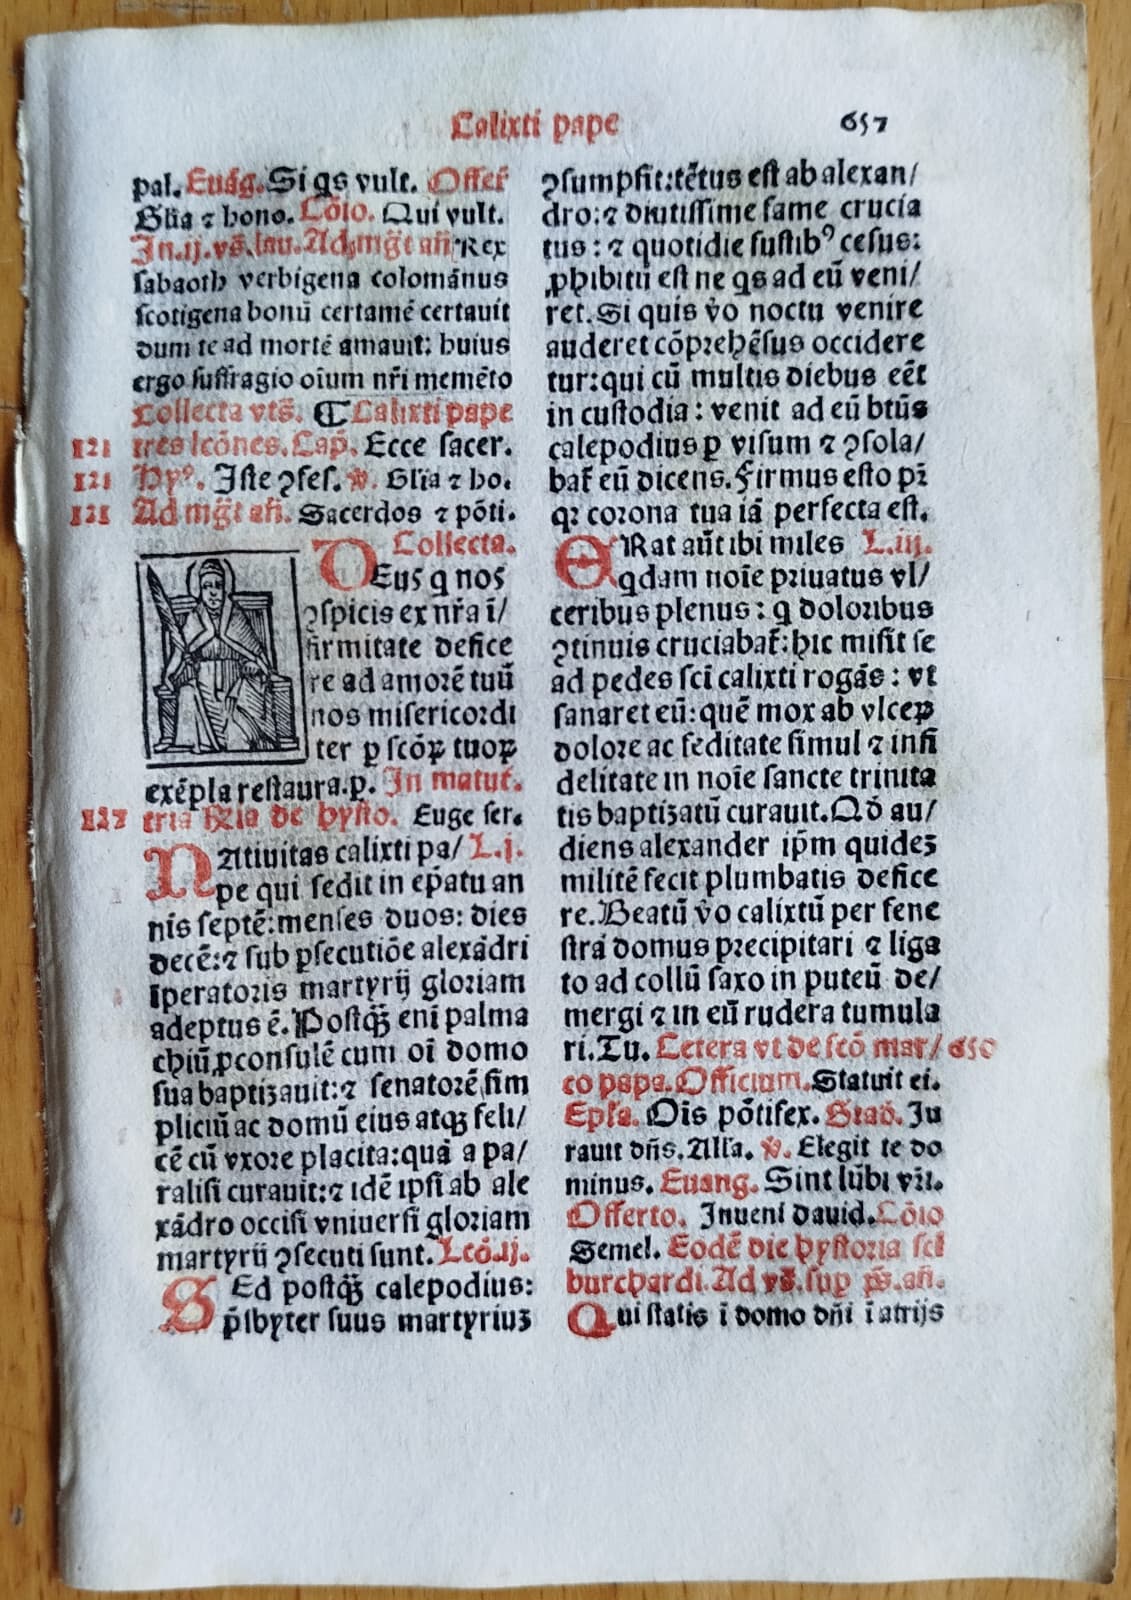 Calixti pape 657
pal. Euāg. Si qs vult. Offer̄
Gl̄ia ⁊ hono. Cōio. Qui vult.
In .ij. vs̄. lau. Ad mg̃t an̄ Rex
sabaoth verbigena colománus
scotigena bonū certamē certauit
dum te ad mortē amauit: huius
ergo suffragio oīum nr̄i memēto
Collecta vts̄. ¶ Calixti pape
121 tres lcōnes. Cap̄. Ecce sacer.
121 Hyꝰ. Iste ꝯfes. ℣. Gl̄ia ⁊ ho.
125 Ad mg̃t an̄. Sacerdos ⁊ pōti.
Collecta.
DEus q nos
ꝯspicis ex nr̄a ī/
firmitate defice
re ad amorē tuū
nos misericordi
ter ꝑ scōꝝ tuoꝝ
exēpla restaura. ꝑ. In matut̄.
127 tria de hysto. Euge ser.
NAtiuitas calixti pa/ L.j.
pe qui sedit in ep̄atu an
nis septē: menses duos: dies
decē: ⁊ sub ꝑsecutiōe alexādri
īperatoris martyrij gloriam
adeptus ē. Postq̄ꝫ enī palma
chiū ꝓconsulē cum oī domo
sua baptizauit: ⁊ senatorē sim
pliciū ac domū eius atqꝫ feli/
cē cū vxore placita: quā a pa/
ralisi curauit: ⁊ idē ipsi ab ale
xādro occisi vniuersi gloriam
martyrij ꝯsecuti sunt. Lcō.ij.
SEd postq̄ꝫ calepodius:
p̄sbyter suus martyriuꝫ
ꝯsumpsit: tētus est ab alexan/
dro: ⁊ diutissime fame crucia
tus: ⁊ quotidie fustibꝰ cesus:
ꝓhibitū est ne qs ad eū veni/
ret. Si quis v̊o noctu venire
auderet cōprehēsus occidere
tur: qui cū multis diebus eēt
in custodia: venit ad eū bt̄us
calepodius ꝑ visum ⁊ ꝯsola/
bat̄ eū dicens. Firmus esto pr̄
qꝛ corona tua iā perfecta est.
ERat aūt ibi miles L.iij.
qdam noīe priuatus vl/
ceribus plenus: q doloribus
ꝯtinuis cruciabat̄: hic misit se
ad pedes sci calixti rogās: vt
sanaret eū: quē mox ab vlceꝝ
dolore ac feditate simul ⁊ infi
delitate in noīe sancte trinita
tis baptizatū curauit. Qd̄ au/
diens alexander ip̄m quideꝫ
militē fecit plumbatis defice
re. Beatū v̊o calixtū per fene
strā domus precipitari ⁊ liga
to ad collū saxo in puteū de/
mergi ⁊ in eū rudera tumula
ri. Tu. Cetera vt de scō mar/ 650
co papa. Officium. Statuit ei.
Epl̄a. Ois pōtifex. Grad̄. Iu
rauit dn̄s. Alla. ℣. Elegit te do
minus. Euang. Sint lūbi vr̄i.
Offerto. Inueni dauid. Cōio
Semel. Eodē die hystoria sci
burchardi. Ad vs̄. sup ps̄. an̄.
Qui statis ī domo dn̄i ī atrijs